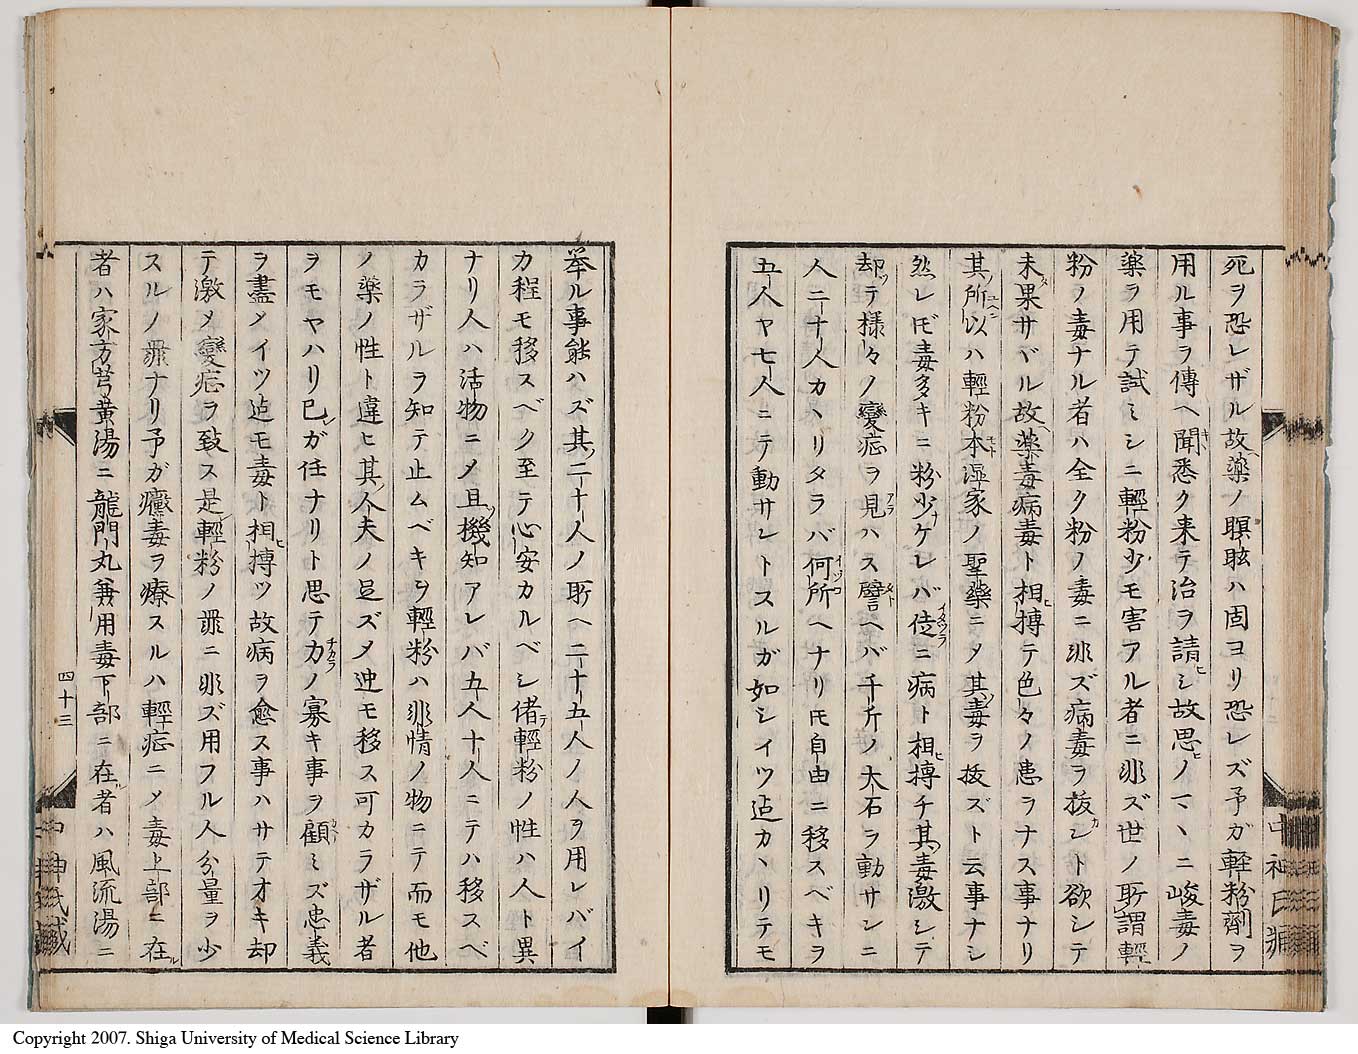 死ヲ恐レザル故薬ノ瞑眩ハ固ヨリ恐レズ予ガ輕粉劑ヲ
用ル事ヲ傳ヘ聞キ悉ク来テ治ヲ請ヒシ故思ヒノマヽニ峻毒ノ
薬ヲ用テ試ミシニ輕粉少モ害アル者ニ非ズ世ノ所謂輕
粉ノ毒ナル者ハ全ク粉ノ毒ニ非ズ病毒ヲ抜カント欲シテ
未タ果サヾル故ヘ薬毒病毒ト相ヒ摶テ色々ノ患ヲナス事ナリ
其ノ所以ユヘンハ輕粉本モト湿家ノ聖薬ニメ其ノ毒ヲ抜ズト云事ナシ
然レ𪜈毒多キニ粉少ナケレバ徒イタヅラニ病ト相ヒ摶チ其ノ毒激シテ
却ツテ様々ノ變症ヲ見アラハス譬タトヘバ千斤ノ大石ヲ動サンニ
人二十人カヽリタラバ何所イヅコヘナリ𪜈自由ニ移スベキヲ
五人ヤ七人ニテ動サントスルガ如シイツ迠カヽリテモ
挙ル事能ハズ其ノ二十人ノ所ヘ二十五人ノ人ヲ用レバイ
カ程モ移スベク至テ心安カルベシ偖テ輕粉ノ性ハ人ト異
ナリ人ハ活物ニメ且ツ機知アレバ五人十人ニテハ移スベ
カラザルヲ知テ止ムベキヲ輕粉ハ非情ノ物ニテ而モ他
ノ薬ノ性ト違ヒ其ノ人夫ノ足ズメ迚モ移ス可カラザル者
ヲモヤハリ己レガ任ナリト思テ力チカラノ寡キ事ヲ顧カヘリミズ忠義
ヲ盡メイツ迠モ毒ト相ヒ摶ツ故病ヲ愈ス事ハサテオキ却
テ激メ變症ヲ致ス是レ輕粉ノ罪ニ非ズ用フル人分量ヲ少
スルノ罪ナリ予ガ癥毒ヲ療スルハ輕症ニメ毒上部ニ在ル
者ハ家方芎黄湯ニ龍門丸兼用毒下部ニ在ル者ハ風流湯ニ
四十三
中神氏藏
中神氏藏
Copyright 2007. Shiga University of Medical Science Library